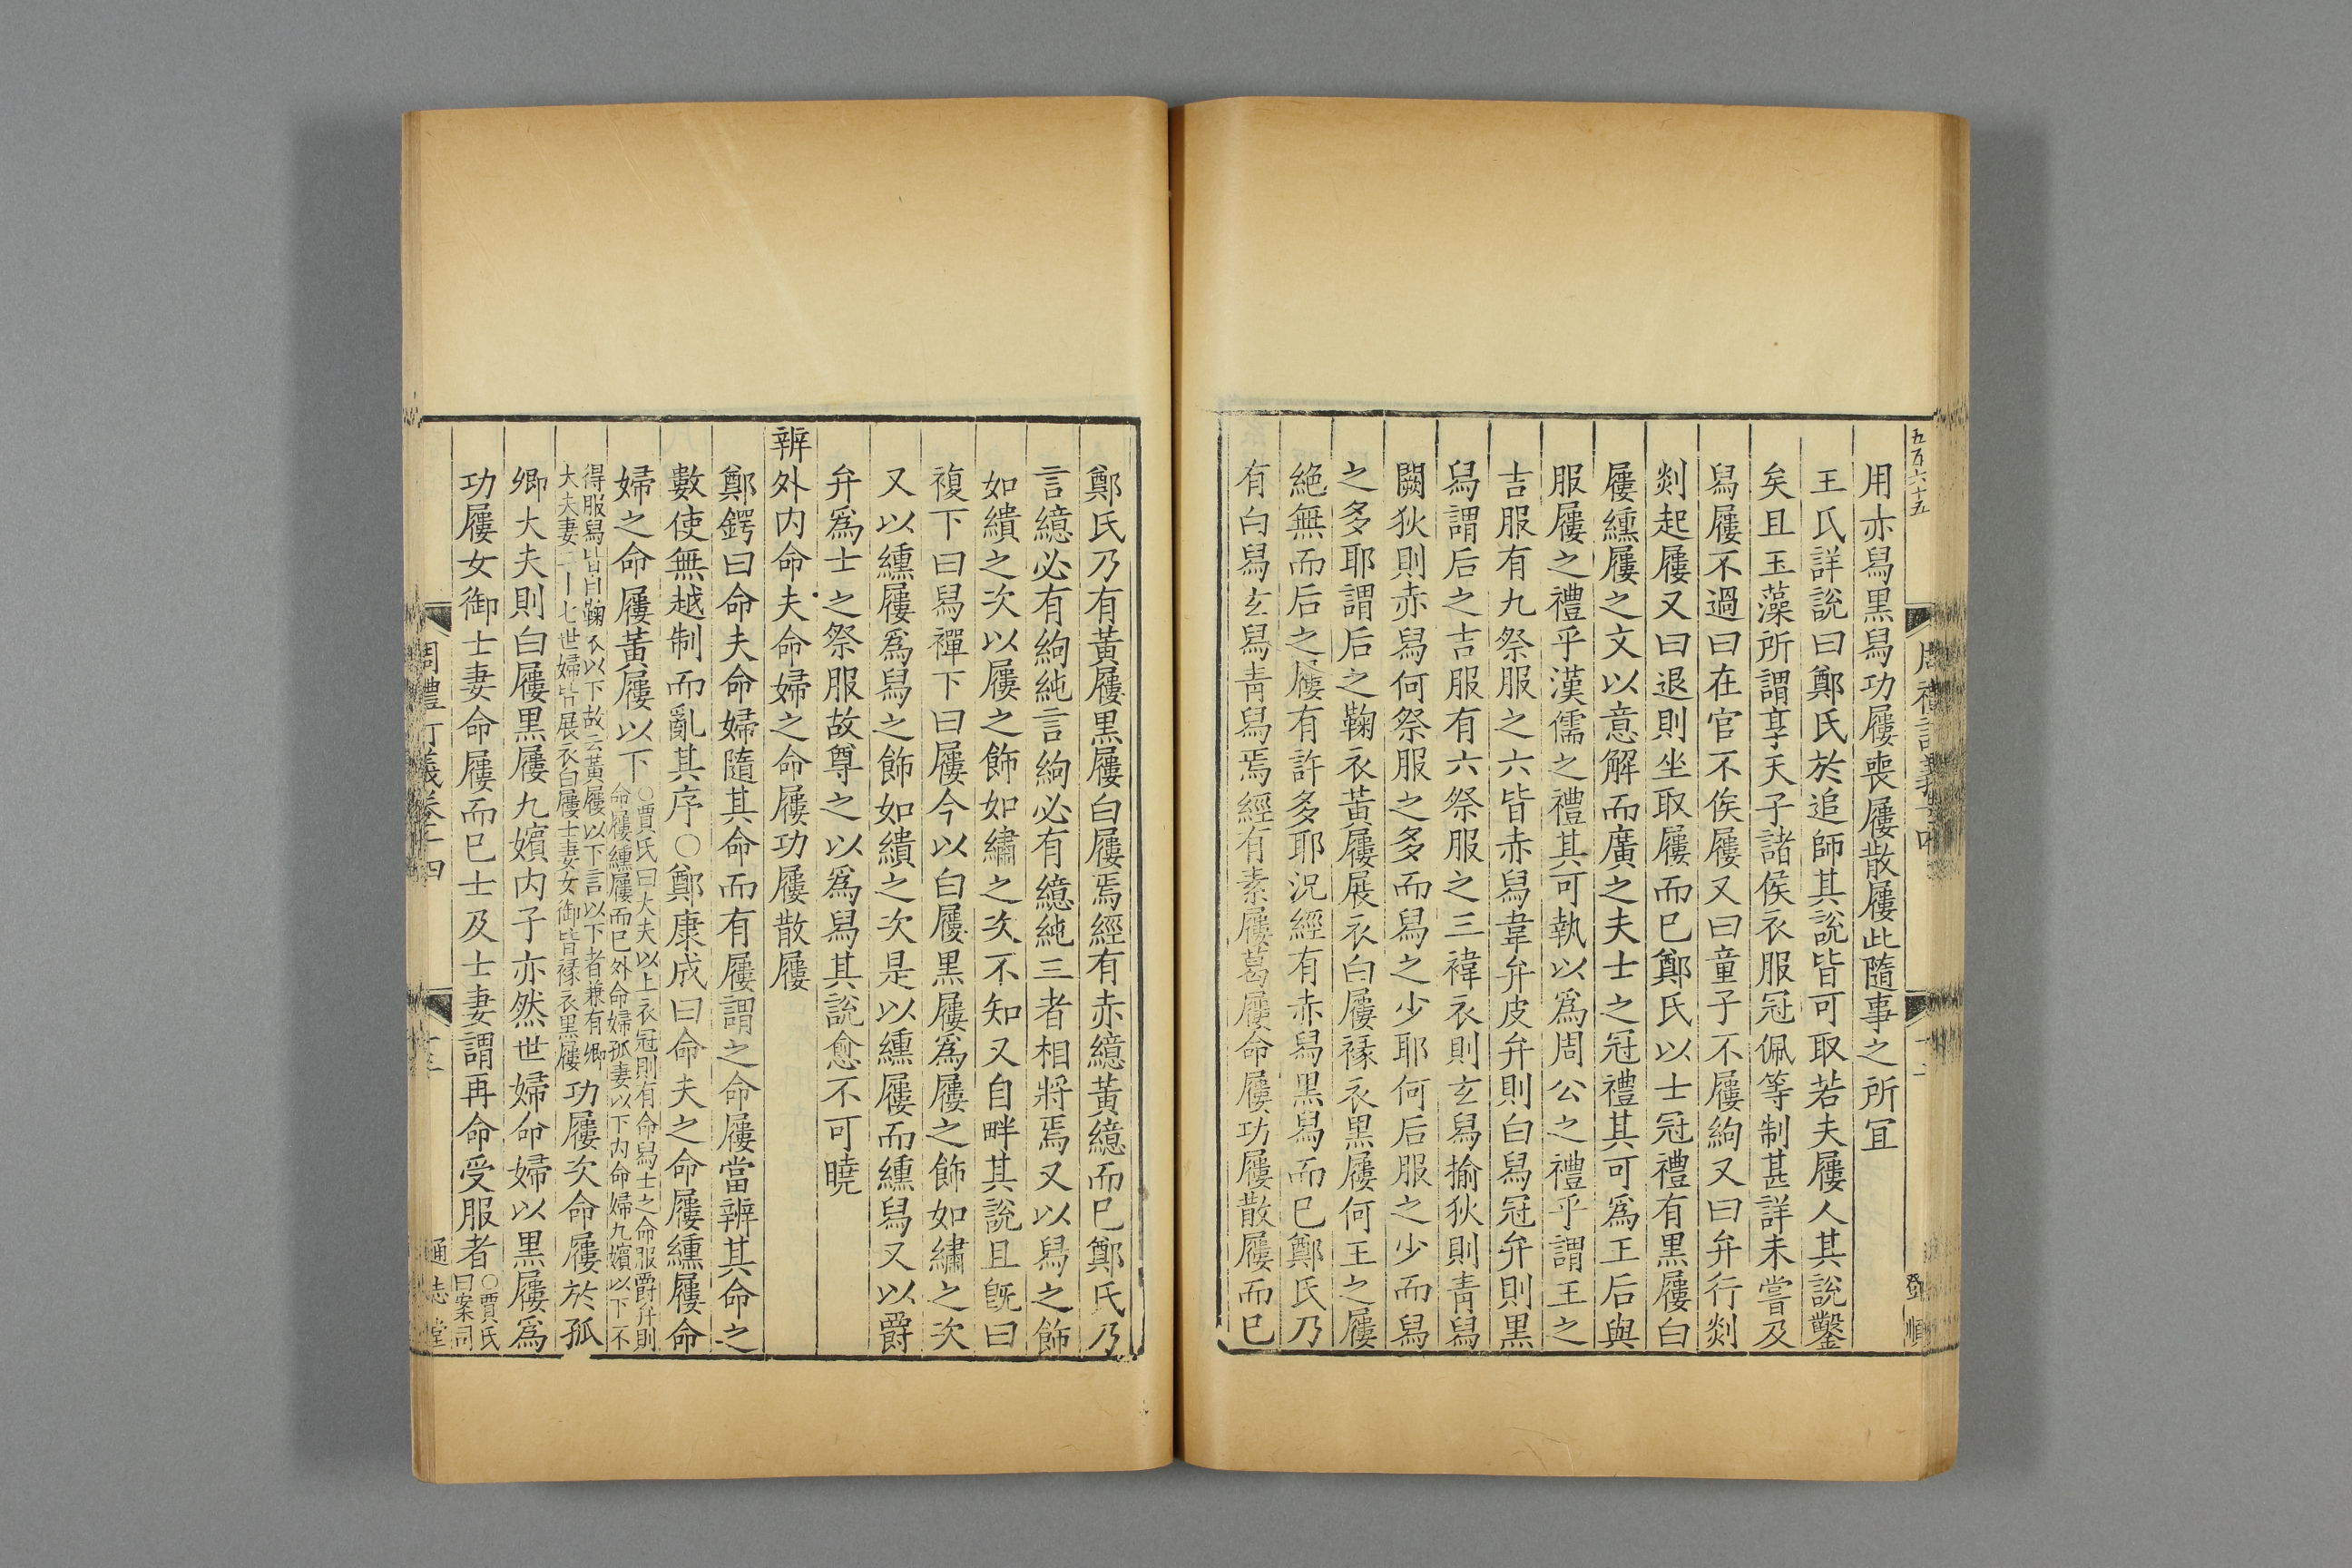 五百六十五
鄧順
用亦舄黒舄功屨喪屨散屨此隨事之所宜
王氏詳說曰鄭氏於追師其說皆可取若夫屨人其說鑿
矣且玉藻所謂享天子諸侯衣服冠佩等制甚詳未嘗及
舄屨不過曰在官不俟屨又曰童子不屨絇又曰弁行剡
剡起屨又曰退則坐取屨而已鄭氏以士冠禮有黒屨白
屨纁屨之文以意解而廣之夫士之冠禮其可爲王后與
服屨之禮乎漢儒之禮其可執以爲周公之禮乎謂王之
吉服有九祭服之六皆赤舄韋弁皮弁則白舄冠弁則黒
舄謂后之吉服有六祭服之三褘衣則玄舄揄狄則青舄
闕狄則赤舄何祭服之多而舄之少耶何后服之少而舄
之多耶謂后之鞠衣黃屨展衣白屨褖衣黒屨何王之屨
絶無而后之屨有許多耶況經有赤舄黒舄而已鄭氏乃
有白舄玄舄青舄焉經有素屨葛屨命屨功屨散屨而已
鄭氏乃有黃屨黒屨白屨焉經有赤繶黃繶而已鄭氏乃
言繶必有絇純言絇必有繶純三者相將焉又以舄之飾
如繢之次以屨之飾如繡之次不知又自畔其說且旣曰
複下曰舄禪下曰屨今以白屨黒屨爲屨之飾如繡之次
又以纁屨爲舄之飾如繢之次是以纁屨而纁舄又以爵
弁爲士之祭服故尊之以爲舄其說愈不可曉
辨外内命夫命婦之命屨功屨散屨
鄭鍔曰命夫命婦隨其命而有屨謂之命屨當辨其命之
數使無越制而亂其序○鄭康成曰命夫之命屨纁屨命
婦之命屨黃屨以下○賈氏曰大夫以上衣冠則有命舄士之命服爵弁則
命屨纁屨而已外命婦孤妻以下内命婦九嬪以下不
得服舄皆自鞠衣以下故云黃屨以下言以下者兼有卿
大夫妻二十七世婦皆展衣白屨士妻女御皆褖衣黒屨功屨次命屨於孤
卿大夫則白屨黒屨九嬪内子亦然世婦命婦以黒屨爲
功屨女御士妻命屨而已士及士妻謂再命受服者○賈氏
曰案司
周禮訂義卷十四
通志堂